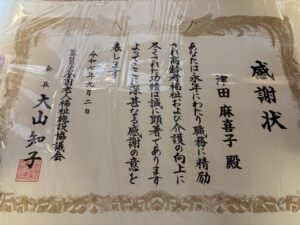 感謝状
津田麻喜子殿
あなたは永年にわたり職務に精励
され高齢者福祉および介護の向上に
尽された功績は誠に顕著であります
よってここに深甚なる感謝の意を
表します
令和七年九月二日
全国老人福祉施設協議会
会長 大山知子